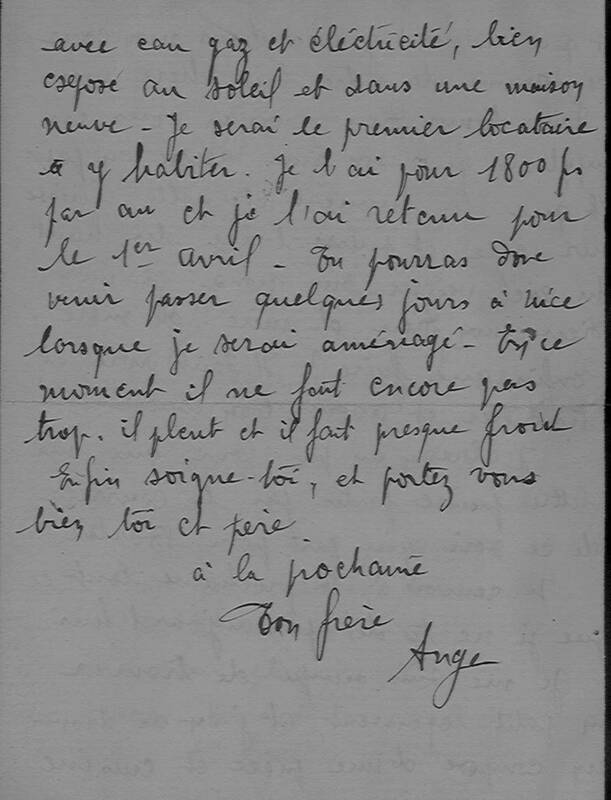 avec eau gaz et éléctricité, bien
exposé au soleil et dans une maison
neuve - Je serai le premier locataire
à y habiter. Je l'ai pour 1800 frs
par an et je l'ai retenu pour
le 1er avril - Tu pourras donc
venir passer quelques jours à nice
lorsque je serai aménagé - En ce
moment il ne fait encore pas
trop. il pleut et il fait presque froid
Enfin soigne-toi, et portez vous
bien toi et père
à la prochaine
Ton frère
Ange